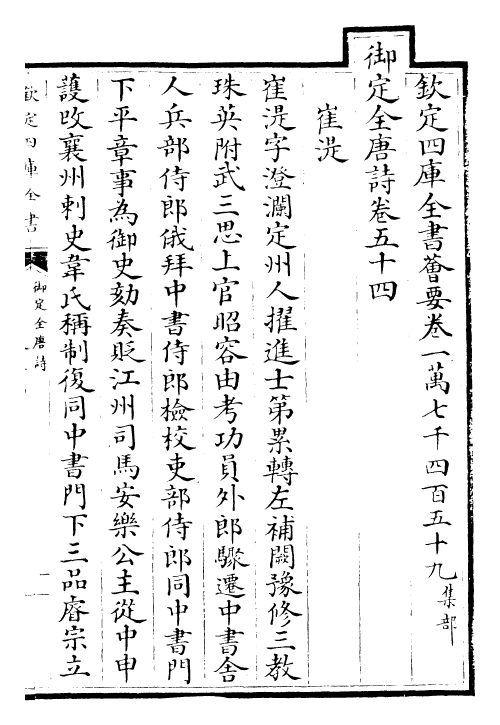 欽定四庫全書薈要卷一萬七千四百五十九集部
御定全唐詩卷五十四
崔湜
崔湜字澄瀾定州人擢進士第累轉左補闕豫修三教
珠英附武三思上官昭容由考功員外郎驟遷中書舍
人兵部侍郎俄拜中書侍郎檢校吏部侍郎同中書門
下平章事為御史劾奏貶江州司馬安樂公主從中申
護改襄州刺史韋氏稱制復同中書門下三品睿宗立
欽定四庫全書
御定全唐詩
一